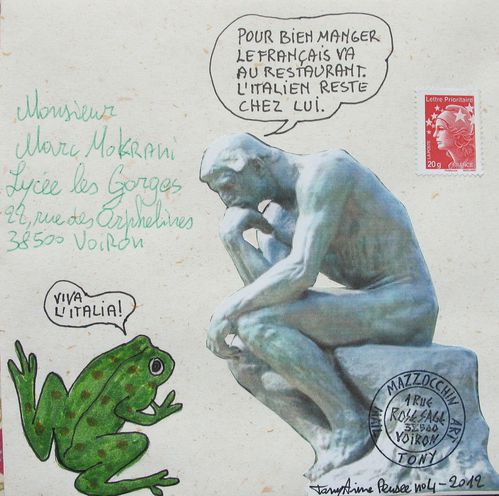 POUR BIEN MANGER
LE FRANÇAIS VA
AU RESTAURANT.
L'ITALIEN RESTE
CHEZ LUI.
Lettre Prioritaire
LA POSTE
FRANCE
20g
Monsieur
Marc MOKRANI
Lycée les Gorges
22, rue des Orphelines
38500 VOIRON
VIVA
L'ITALIA!
MAZZOCCHIN
TONY
MAIL ART
1 RUE
ROSE SAGE
38500
VOIRON
Tony Anime Pensée no4 - 2012